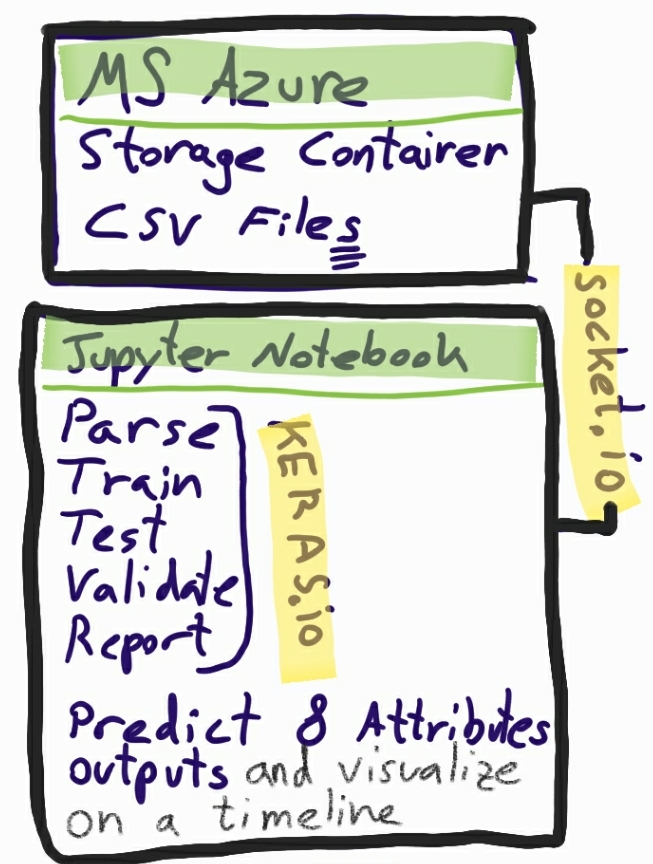 MS Azure
Storage Container
CSV Files
socket.io
Jupyter Notebook
Parse
Train
Test
Validate
Report
KERAS.io
Predict & Attributes
outputs and visualize
on a timeline